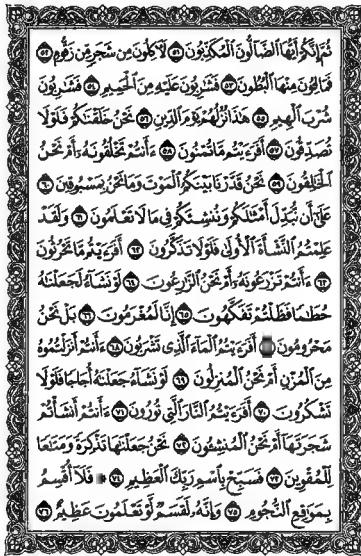 ثُمَّ إِنَّكُمْ أَيُّهَا ٱلضَّآلُّونَ ٱلْمُكَذِّبُونَ ٥١ لَءَاكِلُونَ مِن شَجَرٍ مِّن زَقُّومٍ ٥٢
فَمَالِـُٔونَ مِنْهَا ٱلْبُطُونَ ٥٣ فَشَٰرِبُونَ عَلَيْهِ مِنَ ٱلْحَمِيمِ ٥٤ فَشَٰرِبُونَ
شُرْبَ ٱلْهِيمِ ٥٥ هَٰذَا نُزُلُهُمْ يَوْمَ ٱلدِّينِ ٥٦ نَحْنُ خَلَقْنَٰكُمْ فَلَوْلَا
تُصَدِّقُونَ ٥٧ أَفَرَءَيْتُم مَّا تُمْنُونَ ٥٨ ءَأَنتُمْ تَخْلُقُونَهُۥٓ أَمْ نَحْنُ
ٱلْخَٰلِقُونَ ٥٩ نَحْنُ قَدَّرْنَا بَيْنَكُمُ ٱلْمَوْتَ وَمَا نَحْنُ بِمَسْبُوقِينَ ٦٠
عَلَىٰٓ أَن نُّبَدِّلَ أَمْثَٰلَكُمْ وَنُنشِئَكُمْ فِى مَا لَا تَعْلَمُونَ ٦١ وَلَقَدْ
عَلِمْتُمُ ٱلنَّشْأَةَ ٱلْأُولَىٰ فَلَوْلَا تَذَكَّرُونَ ٦٢ أَفَرَءَيْتُم مَّا تَحْرُثُونَ
٦٣ ءَأَنتُمْ تَزْرَعُونَهُۥٓ أَمْ نَحْنُ ٱلزَّٰرِعُونَ ٦٤ لَوْ نَشَآءُ لَجَعَلْنَٰهُ
حُطَٰمًا فَظَلْتُمْ تَفَكَّهُونَ ٦٥ إِنَّا لَمُغْرَمُونَ ٦٦ بَلْ نَحْنُ
مَحْرُومُونَ أَفَرَءَيْتُمُ ٱلْمَآءَ ٱلَّذِى تَشْرَبُونَ ٦٨ ءَأَنتُمْ أَنزَلْتُمُوهُ
مِنَ ٱلْمُزْنِ أَمْ نَحْنُ ٱلْمُنزِلُونَ ٦٩ لَوْ نَشَآءُ جَعَلْنَٰهُ أُجَاجًا فَلَوْلَا
تَشْكُرُونَ ٧٠ أَفَرَءَيْتُمُ ٱلنَّارَ ٱلَّتِى تُورُونَ ٧١ ءَأَنتُمْ أَنشَأْتُمْ
شَجَرَتَهَآ أَمْ نَحْنُ ٱلْمُنشِـُٔونَ ٧٢ نَحْنُ جَعَلْنَٰهَا تَذْكِرَةً وَمَتَٰعًا
لِّلْمُقْوِينَ ٧٣ فَسَبِّحْ بِٱسْمِ رَبِّكَ ٱلْعَظِيمِ ٧٤ فَلَآ أُقْسِمُ
بِمَوَٰقِعِ ٱلنُّجُومِ ٧٥ وَإِنَّهُۥ لَقَسَمٌ لَّوْ تَعْلَمُونَ عَظِيمٌ ٧٦